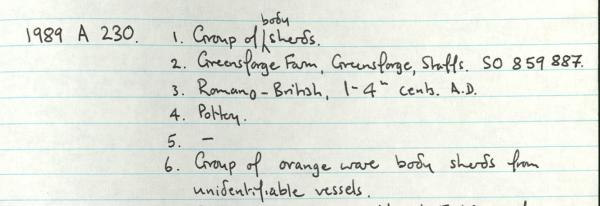 1989 A 230. 1. Group of body sherds.
2. Greensforge Farm, Greensforge, Staffs. SO 859 887.
3. Romano-British, 1-4th cents. A.D.
4. Pottery.
5. –
6. Group of orange ware body sherds from
unidentifiable vessels.